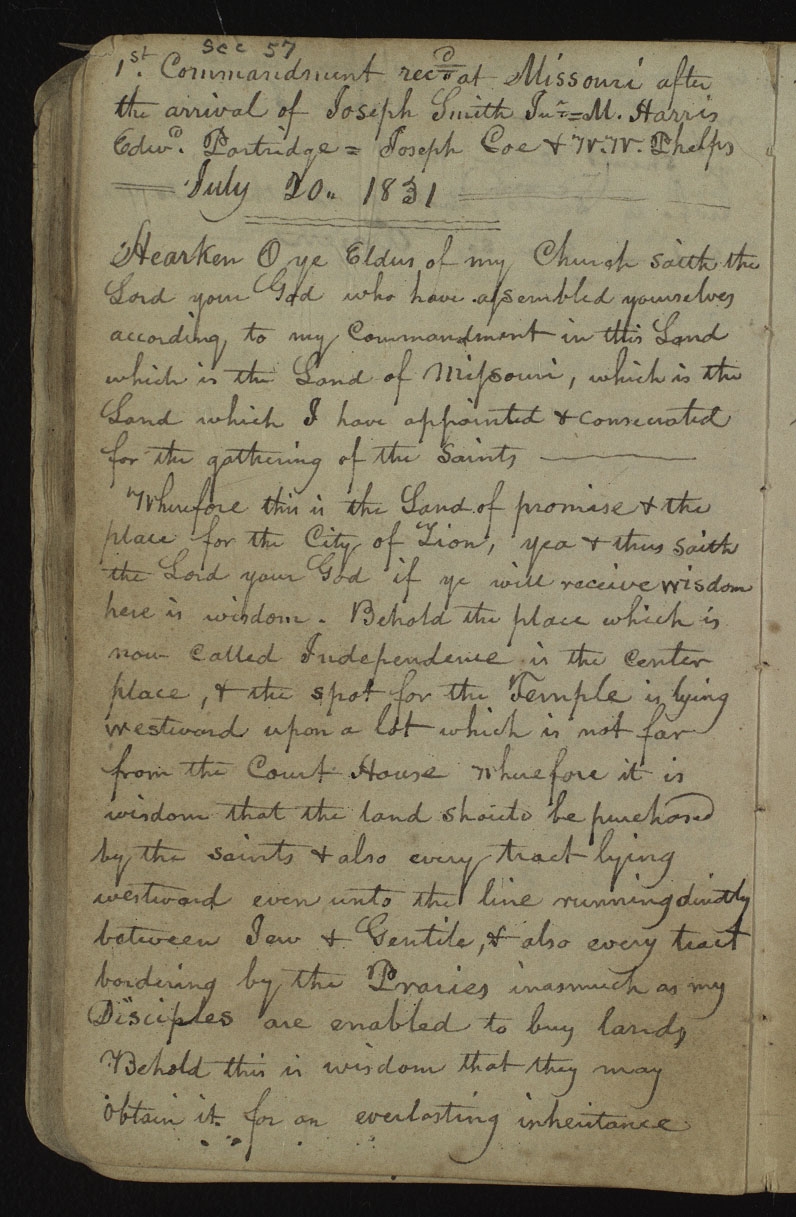 Sec 57
1st. Commandment recd at Missouri after
the arrival of Joseph Smith Jur= M. Harris
Edwd. Partridge = Joseph Coe & W. W. Phelps
July 20.. 1831
Hearken O ye Elders of my Church saith the
Lord your God who have assembled yourselves
according to my Commandment in this Land
which is the Land of Missouri, which is the
Land which I have appointed & consecrated
for the gathering of the Saints
Wherefore this is the Land of promise & the
place for the City of Zion, yea & thus saith
the Lord your God if ye will receive wisdom
here is wisdom. Behold the place which is
now called Independence is the center
place, & the spot for the Temple is lying
westward upon a lot which is not far
from the Court House wherefore it is
wisdom that the land should be purchased
by the saints & also every tract lying
westward even unto the line running directly
between Jew & Gentile, & also every tract
bordering by the Praries inasmuch as my
Disciples are enabled to buy lands,
Behold this is wisdom that they may
obtain it for an everlasting inheritance